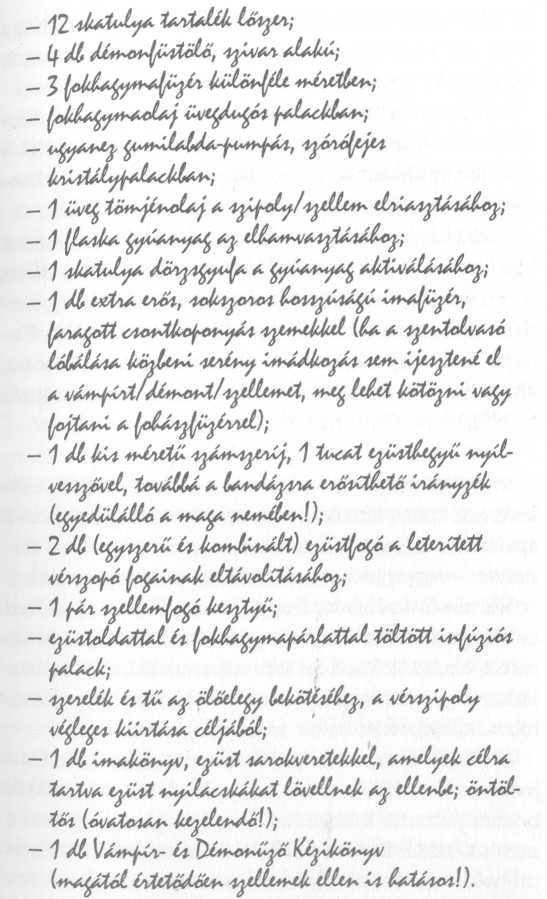 – 12 skatulya tartalék lőszer;
– 4 db démonfüstölő, szivar alakú;
– 3 fokhagymafüzér különféle méretben;
– fokhagymaolaj üvegdugós palackban;
– ugyanez gumilabda-pumpás, szórófejes
kristálypalackban;
– 1 üveg tömjénolaj a szipoly/szellem elriasztásához;
– 1 flaska gyúanyag az elhamvasztásához;
– 1 skatulya dörzsgyufa a gyúanyag aktiválásához;
– 1 db extra erős, sokszoros hosszúságú imafüzér,
faragott csontkoponyás szemekkel (ha a szentolvasó
lóbálása közbeni serény imádkozás sem ijesztené el
a vámpírt/démont/szellemet, meg lehet kötözni vagy
fojtani a fohászfüzérrel);
– 1 db kis méretű számszeríj, 1 tucat ezüsthegyű nyíl-
vesszővel, továbbá a bandázsra erősíthető irányzék
(egyedülálló a maga nemében!);
– 2 db (egyszerű és kombinált) ezüstfogó a leterített
vérszopó fogainak eltávolításához;
– 1 pár szellemfogó kesztyű;
– ezüstoldattal és fokhagymapárlattal töltött infúziós
palack;
– szerelék és tű az ölőelegy bekötéséhez, a vérszipoly
végleges kiirtása céljából;
– 1 db imakönyv, ezüst sarokveretekkel, amelyek célra
tartva ezüst nyilacskákat lövellnek az ellenbe; öntöl-
tős (óvatosan kezelendő!);
– 1 db Vámpír- és Démonűző Kézikönyv
(magától értetődően szellemek ellen is hatásos!).